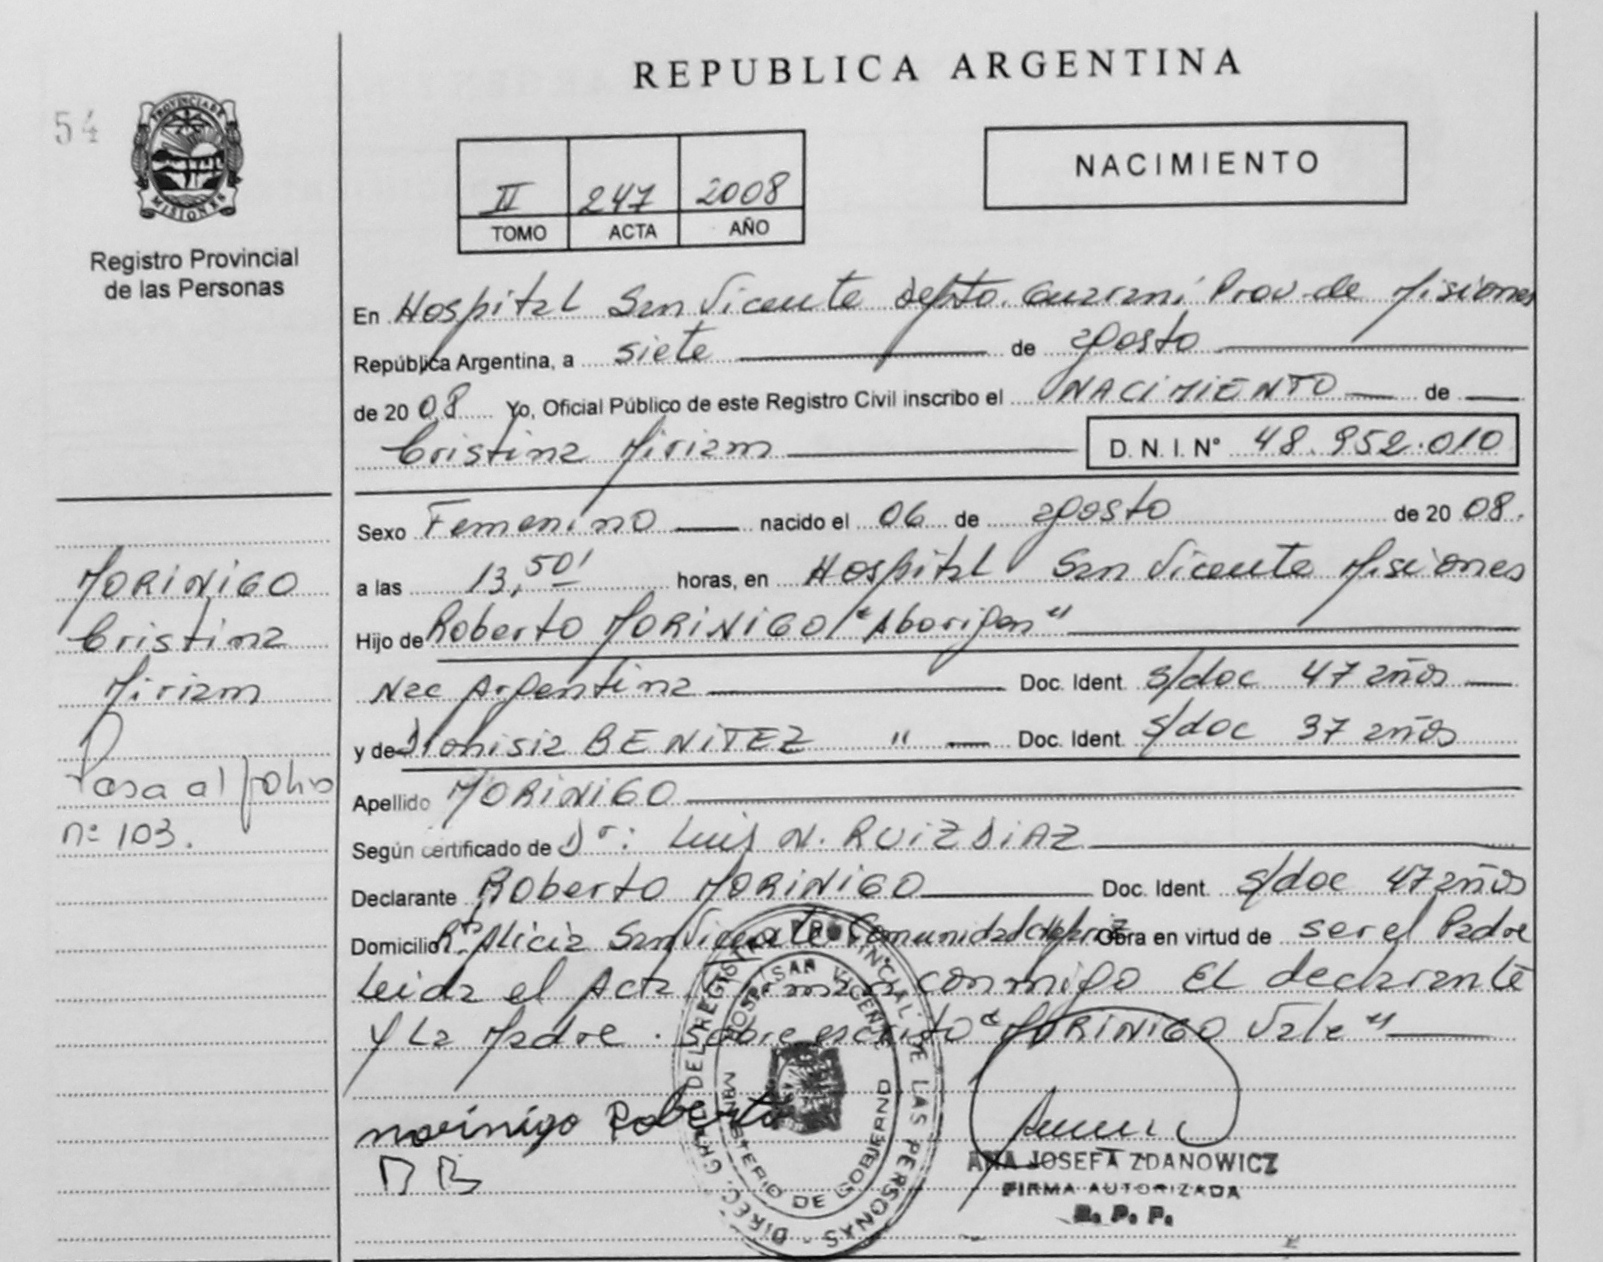 REPUBLICA ARGENTINA
54
PROVINCIA DE
MISIONES
Registro Provincial
de las Personas
II 247 2008
TOMO ACTA AÑO
NACIMIENTO
En Hospital San Vicente depto. Guaraní Prov. de Misiones
República Argentina, a siete de agosto
de 2008 Yo, Oficial Público de este Registro Civil inscribo el NACIMIENTO de
Cristina Miriam D. N. I. N° 48.952.010
Sexo Femenino nacido el 06 de agosto de 2008.
a las 13,50' horas, en Hospital San Vicente Misiones
Hijo de Roberto MORINIGO "Aborigen"
Nac Argentina Doc. Ident. s/doc 47 años
y de Dionisia BENITEZ " Doc. Ident. s/doc 37 años
Apellido MORINIGO
Según certificado de Dr: Luis N. RUIZ DIAZ
Declarante Roberto MORINIGO Doc. Ident. s/doc 47 años
Domicilio Alicia San Vicente Comunidad Obra en virtud de ser el Padre
Leida el Acta, Firman conmigo EL declarante
y La Madre. Sobre escrito "MORINIGO Vale"
MORINIGO
Cristina
Miriam
Pasa al folio
nº 103.
morinigo Roberto
DB
DIREC. GRAL. DEL REGISTRO PROVINCIAL DE LAS PERSONAS
HOSP. SAN VICENTE
MINISTERIO DE GOBIERNO
ANA JOSEFA ZDANOWICZ
FIRMA AUTORIZADA
R. P. P.